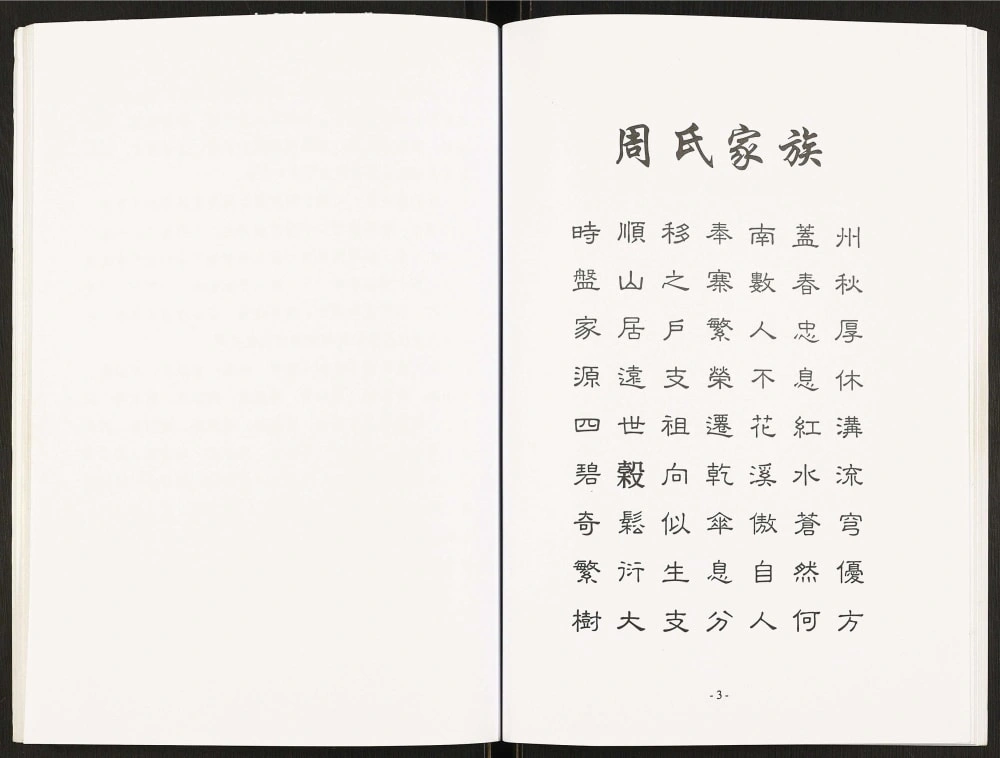 周氏家族
時順移奉南蓋州
盤山之寨數春秋
家居戶繁人忠厚
源遠支榮不息休
四世祖遷花紅溝
碧穀向乾溪水流
奇鬆似傘傲蒼穹
繁衍生息自然優
樹大支分人何方
- 3 -